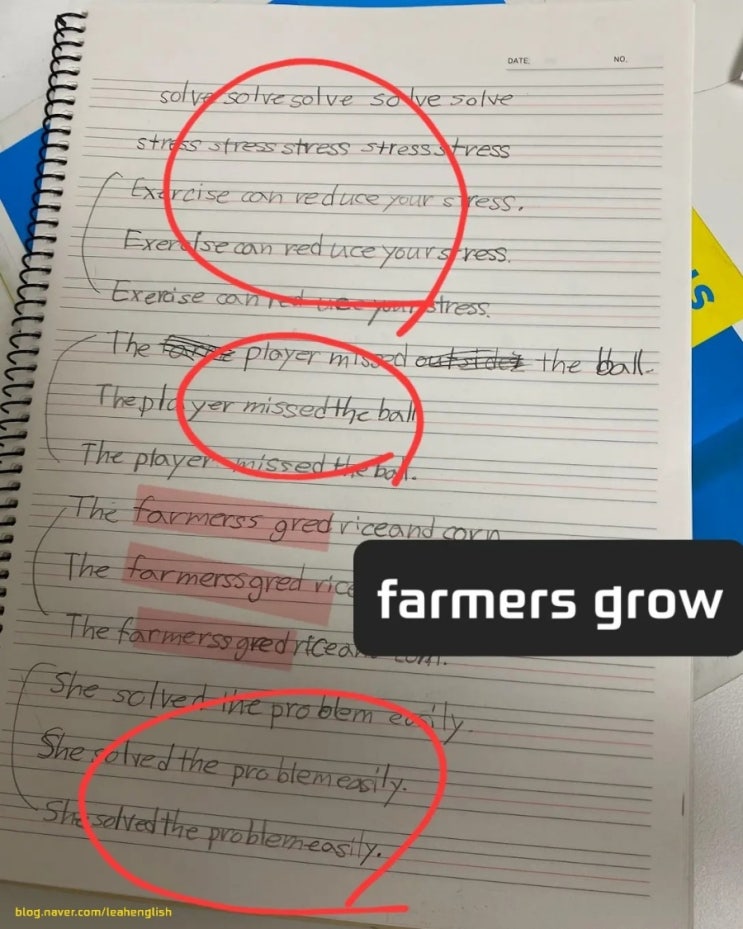 DATE. NO.
solve solve solve solve solve
stress stress stress stress stress
Exercise can reduce your stress.
Exercise can reduce your stress.
Exercise can reduce your stress.
The player missed the ball.
The player missed the ball
The player missed the ball.
The farmerss gred rice and corn
The farmerss gred rice
farmers grow
The farmerss gred rice and corn.
She solved the problem easily.
She solved the problem easily.
She solved the problem easily.
blog.naver.com/leahenglish